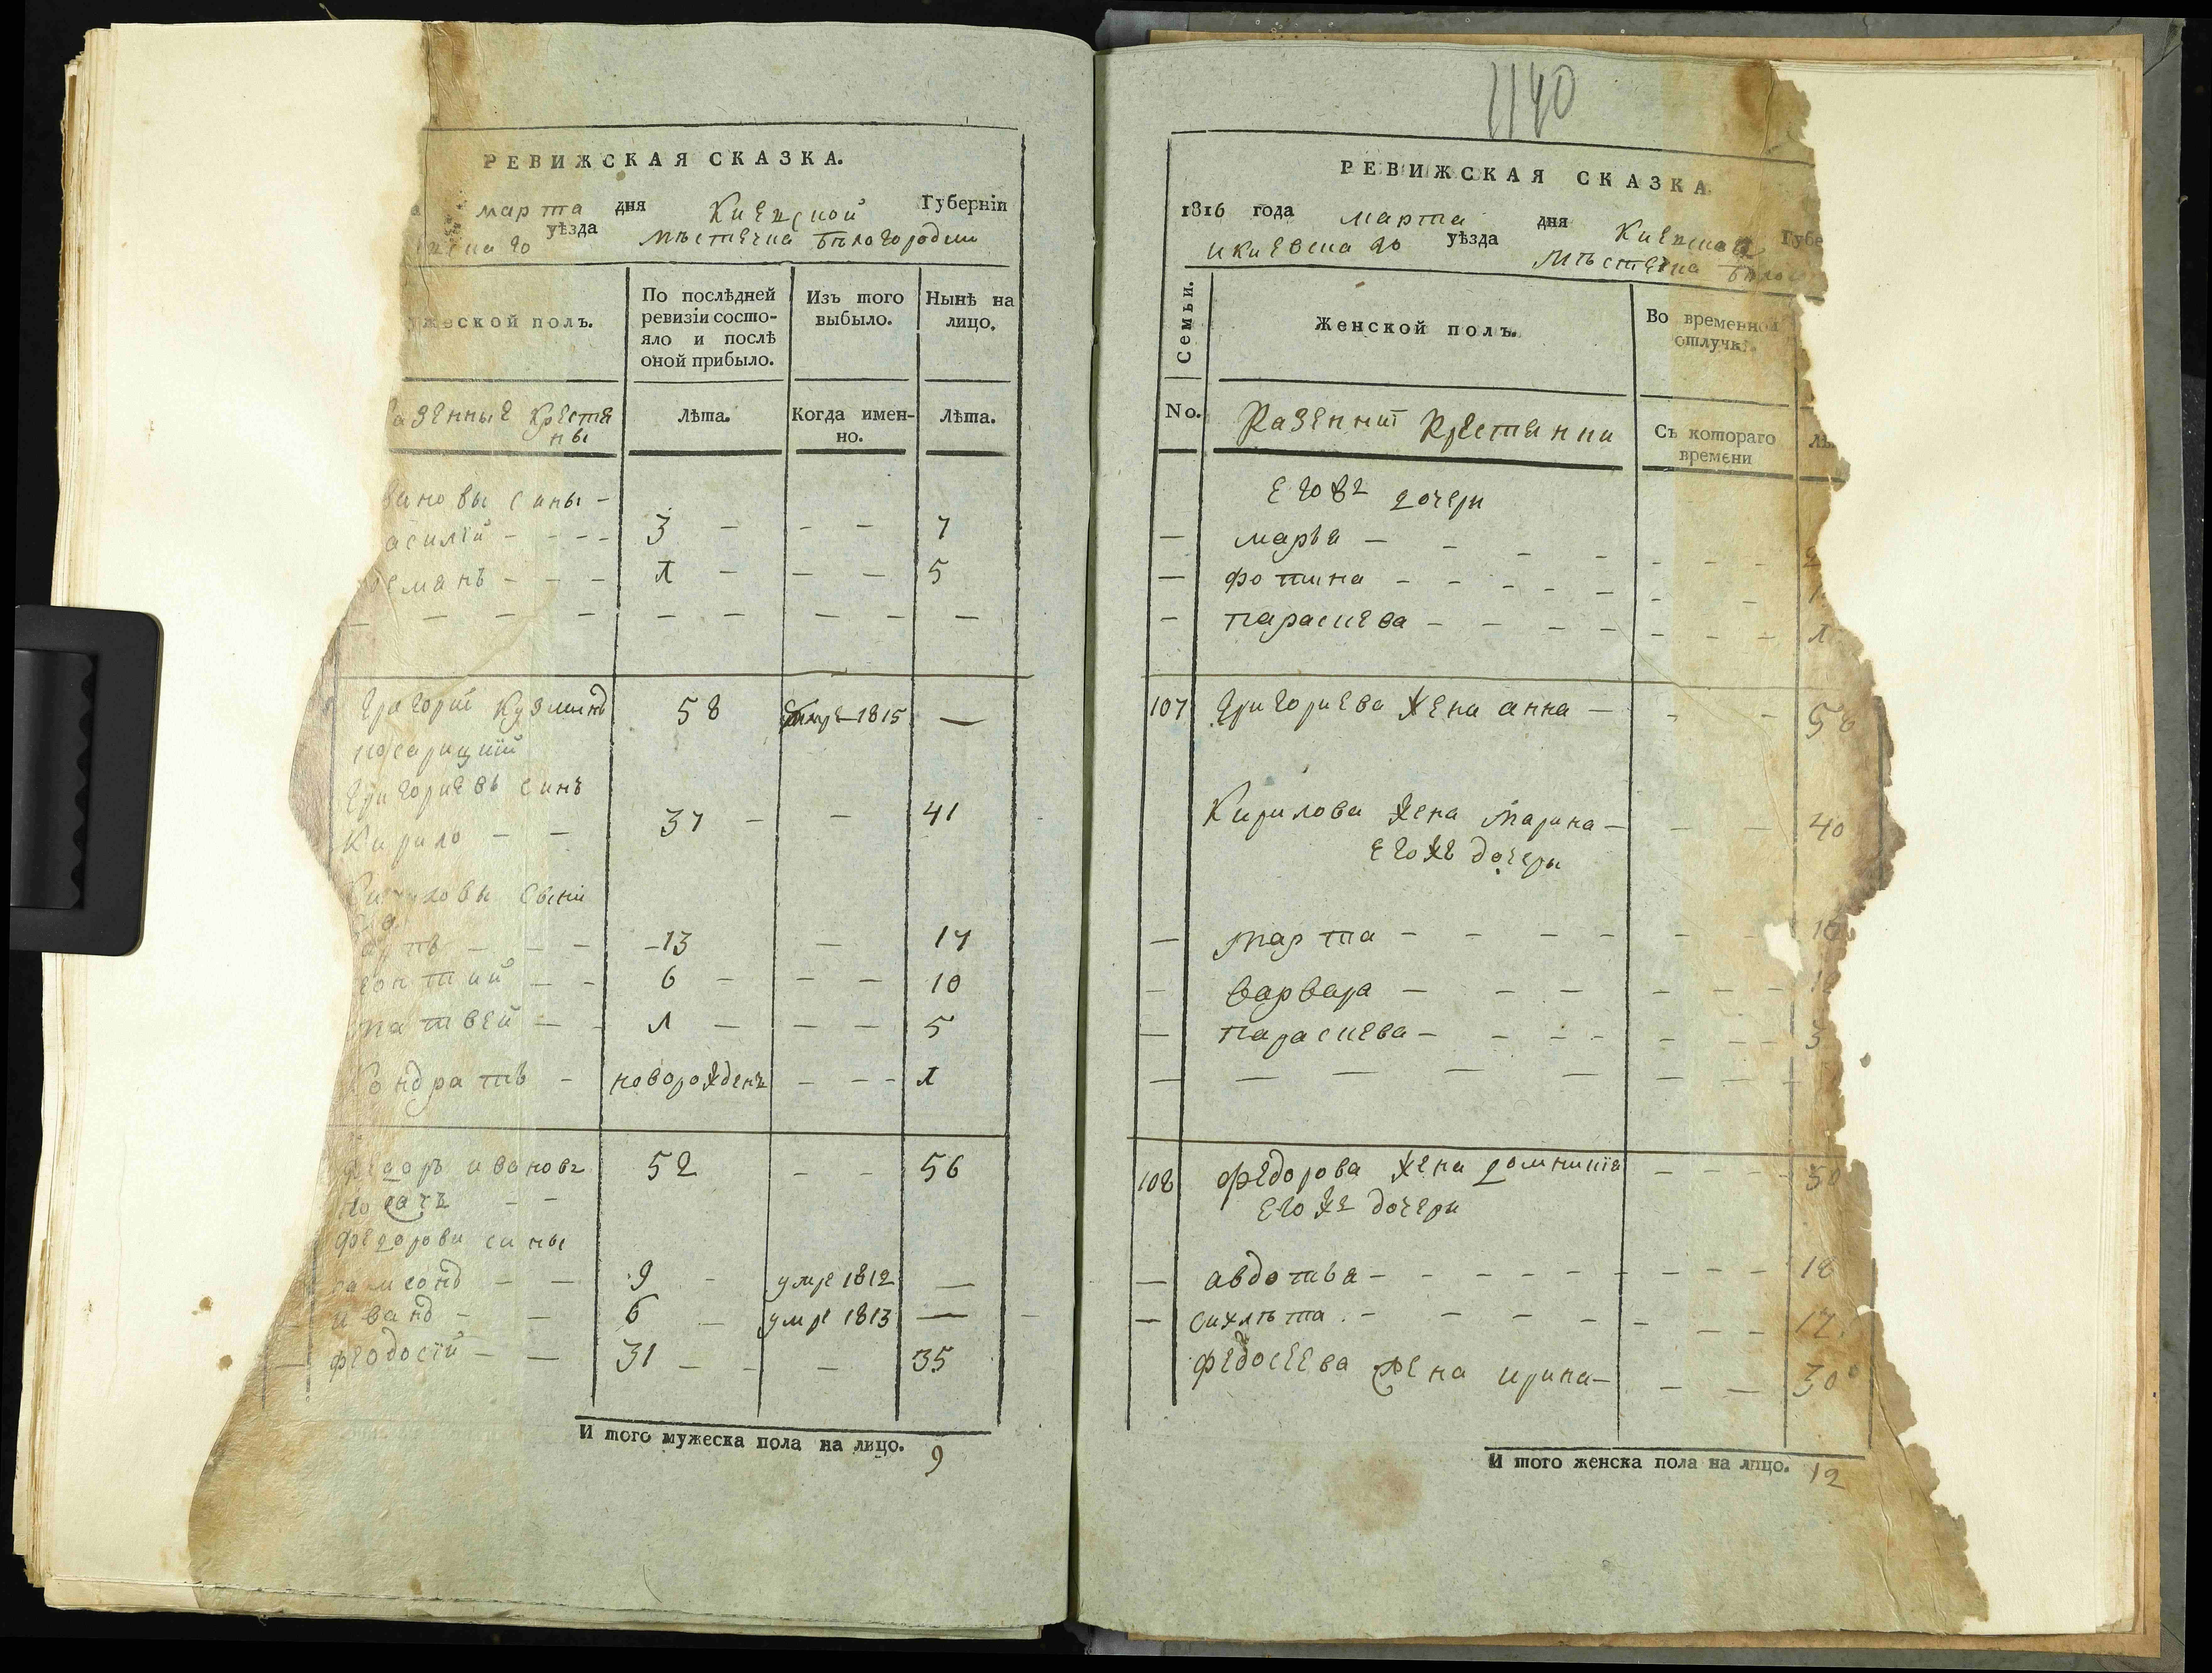 РЕВИЖСКАЯ СКАЗКА.
марта дня Киевской Губернїи
уѣзда мѣстечка Бѣлогородки
жеской полъ.
По послѣдней ревизїи состо-
яло и послѣ
оной прибыло.
Изъ того
выбыло.
Нынѣ на
лицо.
азенные Крестя
ны
Лѣта.
Когда имен-
но.
Лѣта.
вановы сины -
асилїй - - - - 3 - - - 7
еманъ - - - л - - - 5
Григорїй Кузминъ 58 умре 1815 —
косарицкїй
Григориевъ синъ
Кирило - - 37 - - 41
Кириловы сыни
-13 - 17
еонтий - - 6 - - - 10
матвей - - л - - - 5
Кондратъ - новорожденъ - - - л
Федоръ ивановъ 52 - - 56
носачъ - -
Федорови сины
самсонъ - - 9 - умре 1812 —
иванъ - - 6 - умре 1813 —
феодосїй - - 31 - - - 35
И того мужеска пола на лицо. 9
1140
РЕВИЖСКАЯ СКАЗКА
1816 года марта дня Киевской Губе
и киевскаго уѣзда Мѣстечка Бѣло
Семьи.
Женской полъ.
Во временной
отлучкѣ.
No.
Казеннїи Крестянки
Съ котораго
времени
лѣ
Его жъ дочери
— марья - - - -
— фотина - - - - -
- параскева - - - - - - - л
107 Григориева жена анна - - - 58
Кирилова жена Марина - - - 40
Его жъ дочеры
— Марта - - - -
- варвара - - -
— параскева - - - - - - - 3
108 федорова жена домникїя - - - 50
Его жъ дочери
— авдотья - - - - - - - - - 18
— сиклѣта - - - - - - - - 17
федосеева жена ирина - - - 30
И того женска пола на лицо. 12